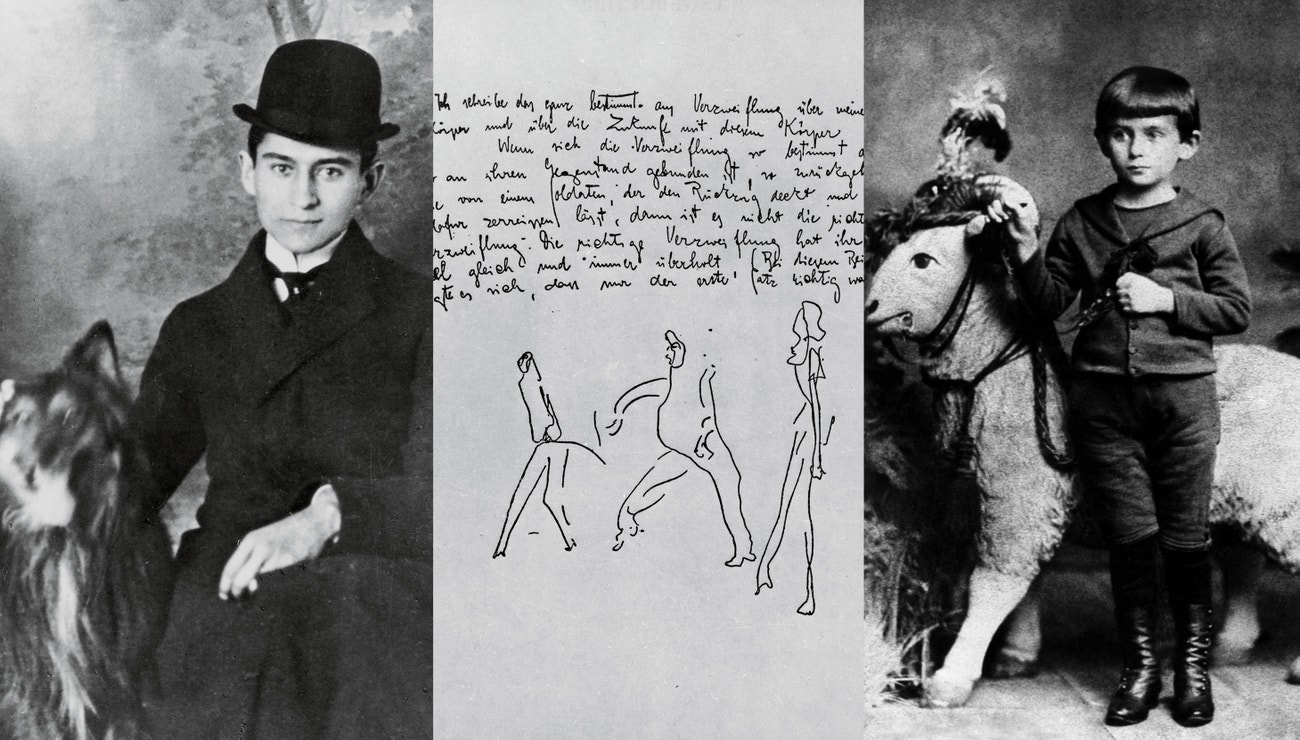 Ich schreibe das ganz bestimmt aus Verzweiflung über meine
örper und über die Zukunft mit diesem Körper
Wenn sich die Verzweiflung so bestimmt
an ihren Gegenstand gebunden ist, so zurückgeh
e von einem Soldaten, der den Rückzug deckt und
dafür zerreissen lässt, dann ist es nicht die richt
rzweiflung. Die richtige Verzweiflung hat ihr
el gleich und immer überholt, (Bei diesem Bei
gte es sich, dass nur der erste Satz richtig wa